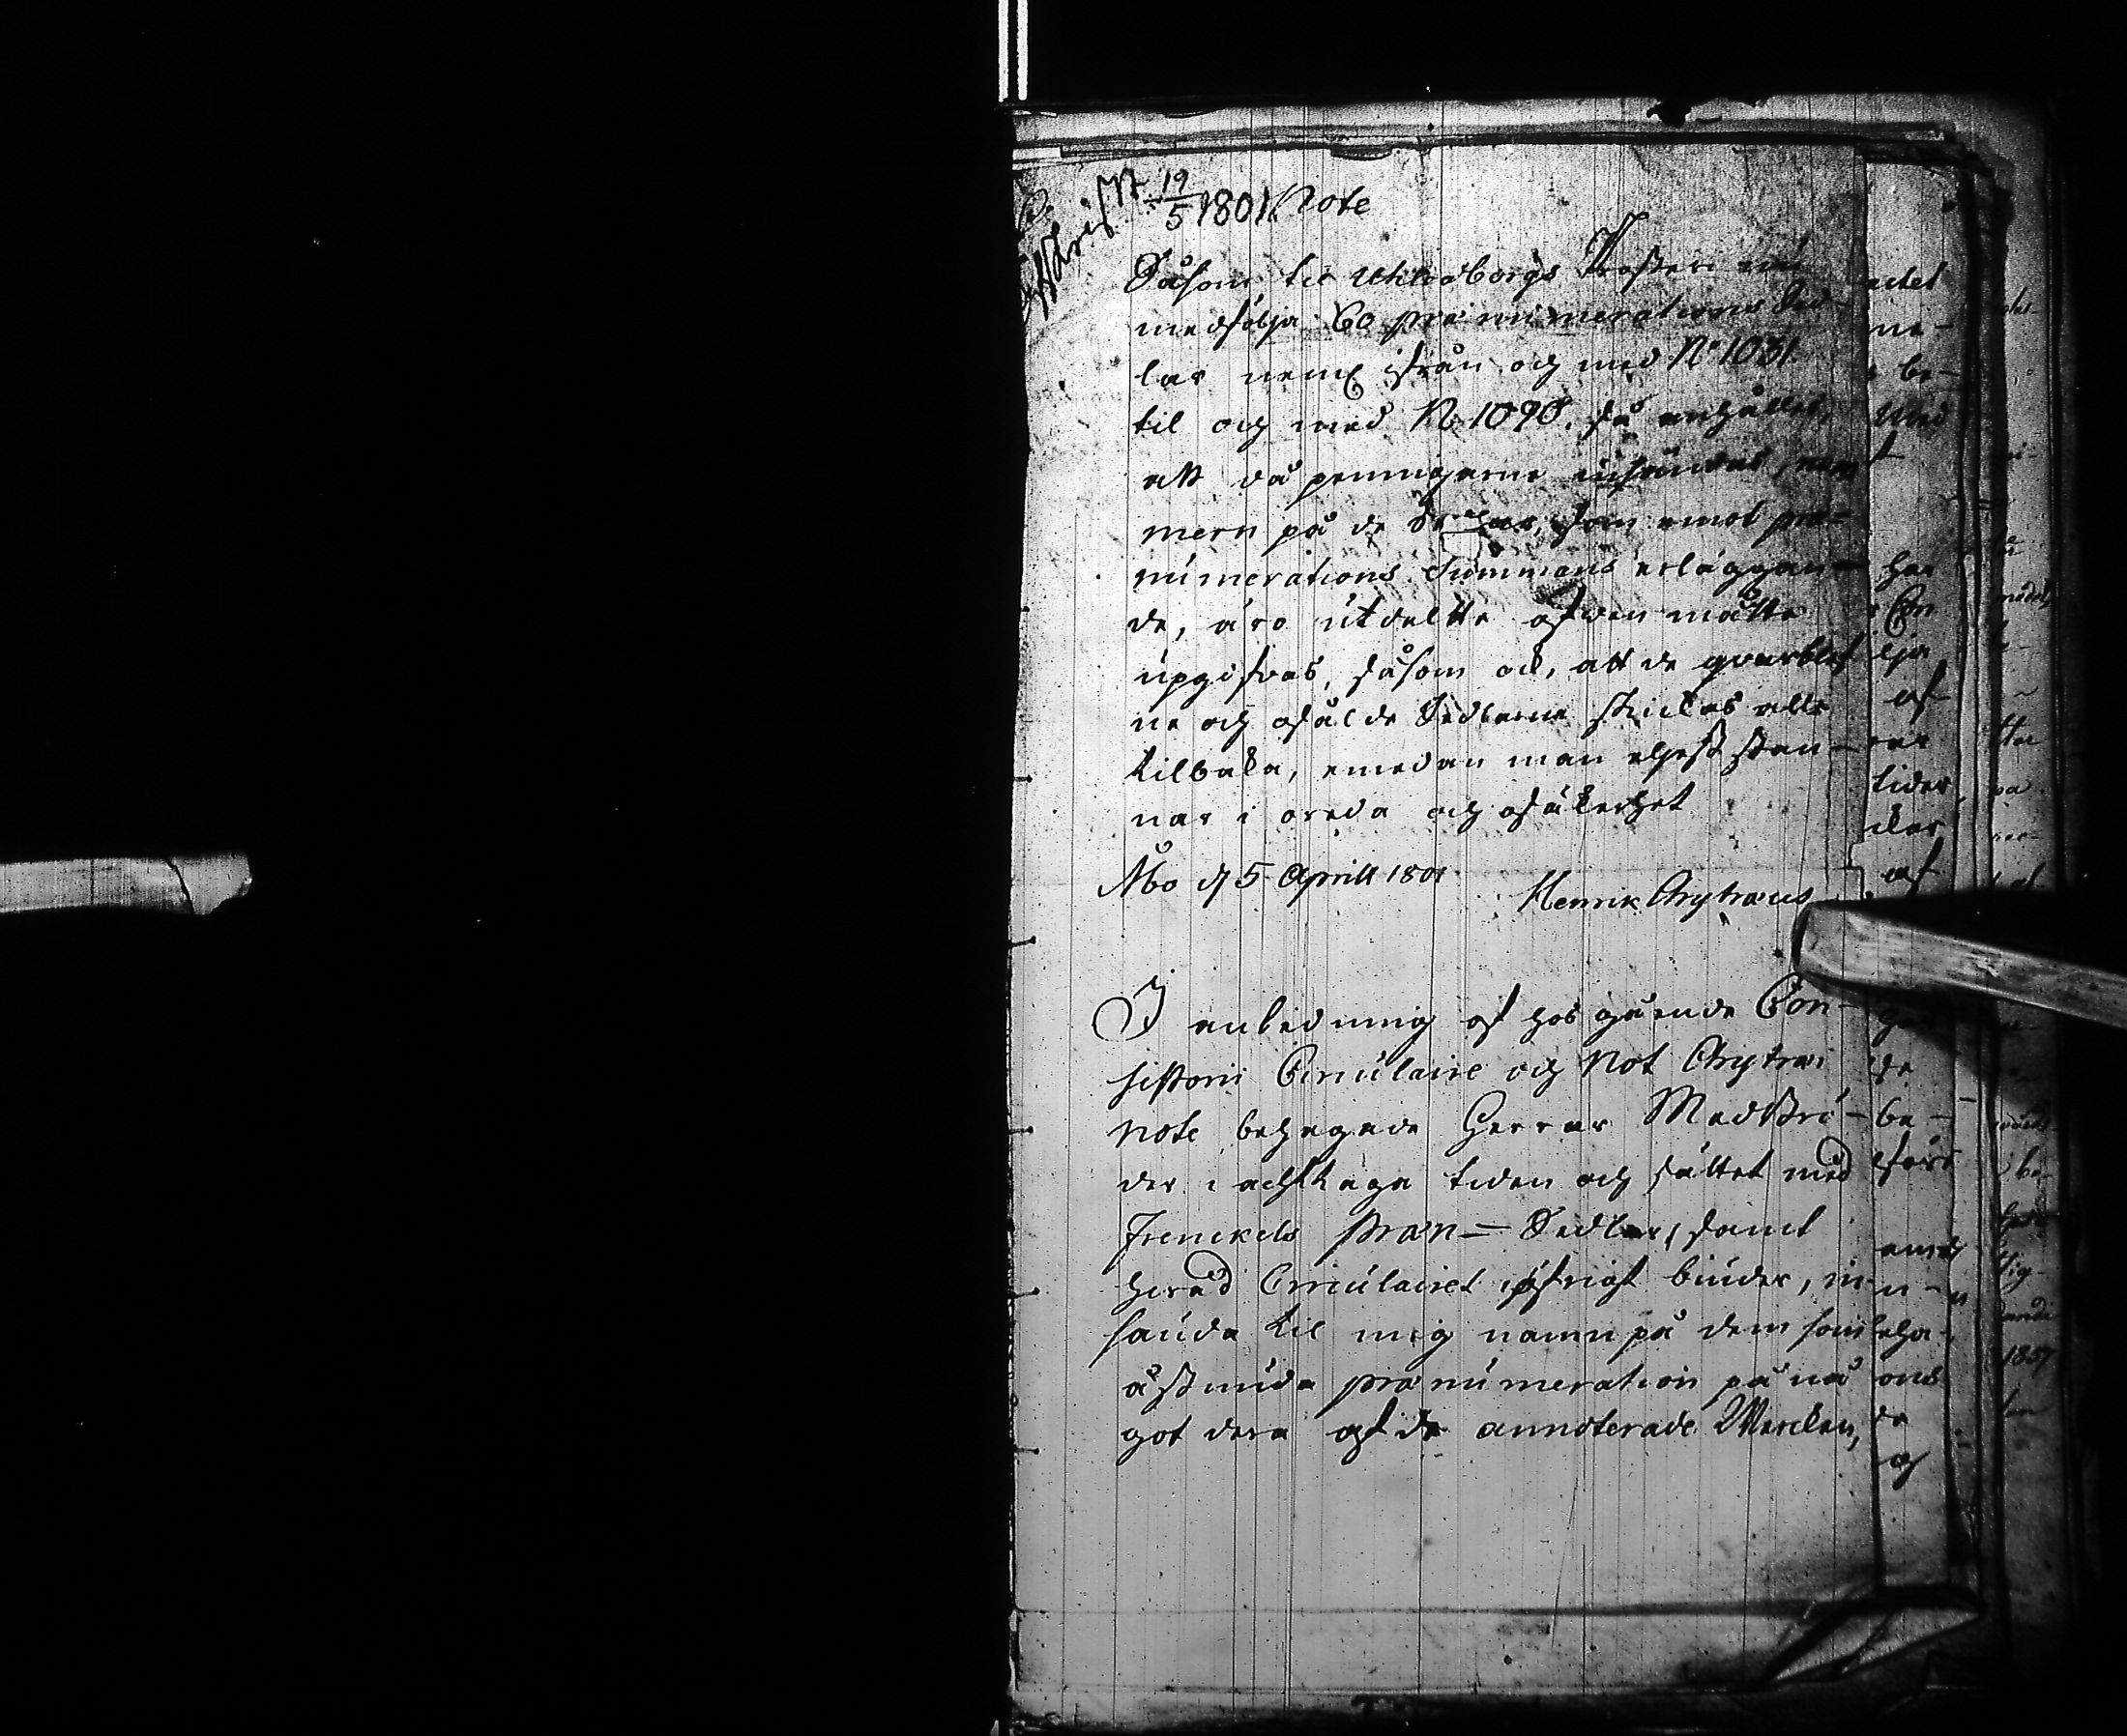 Afskrift 19/5 1801. Note
Såsom til Uhleåborgs Prosteri nu
medfölja 60 prænumerations Sed-
lar neml ifrån och med No 1031.
til och med No 1090. så anhålles,
att då penningarne insändas, num
mern på de Sedlar, som emot præ-
numerations Summans erläggan-
de, äro utdeltte äfven måtte
upgifvas, såsom ock, att de qvarblef
ne och osålde Sedlarne skickas alla
tilbaka, emedan man eljest stan-
nar i oreda och osäkerhet
Åbo d 5 Aprill 1801.
Henrik Chytræus
I anledning af hos gående Con-
sistorii Circulaire och Not Chytræi
note behagade Herrar Medbrö-
der i ackttaga tiden och sättet med
Frenckels præn- Sedlar, samt
hvad Circulairet öfrigt biuder, in-
sända til mig namn på dem som
åstunda prænumeration på nå
got dera af de annoterade Wercken,